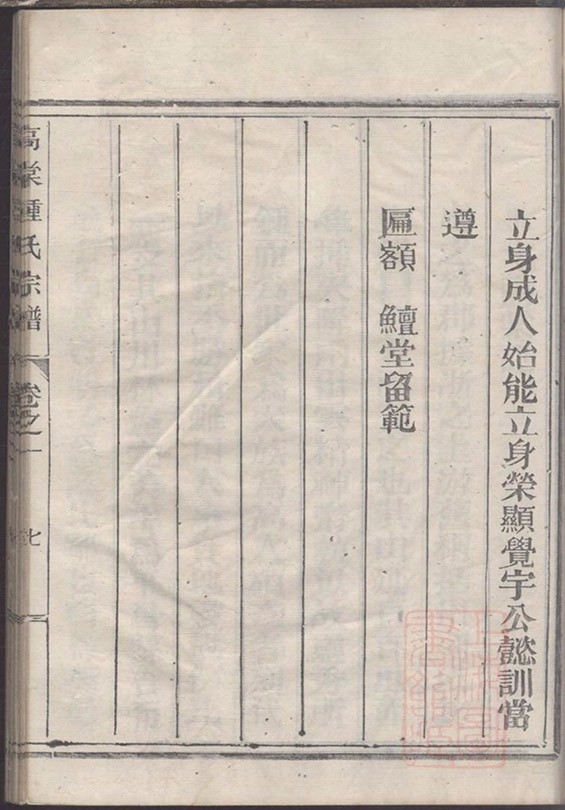 立身成人始能立身榮顯覺宇公懿訓當
遵
匾額　鱣堂留範
高棠鍾氏宗譜
卷之一